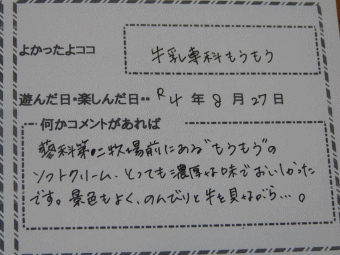 よかったよココ
牛乳専科もうもう
遊んだ日・楽しんだ日・・ R4年8月27日
何かコメントがあれば
蓼科第二牧場前にある"もうもう"の
ソフトクリーム、とっても濃厚な味でおいしかった
です。景色もよく、のんびりと牛を見ながら…。